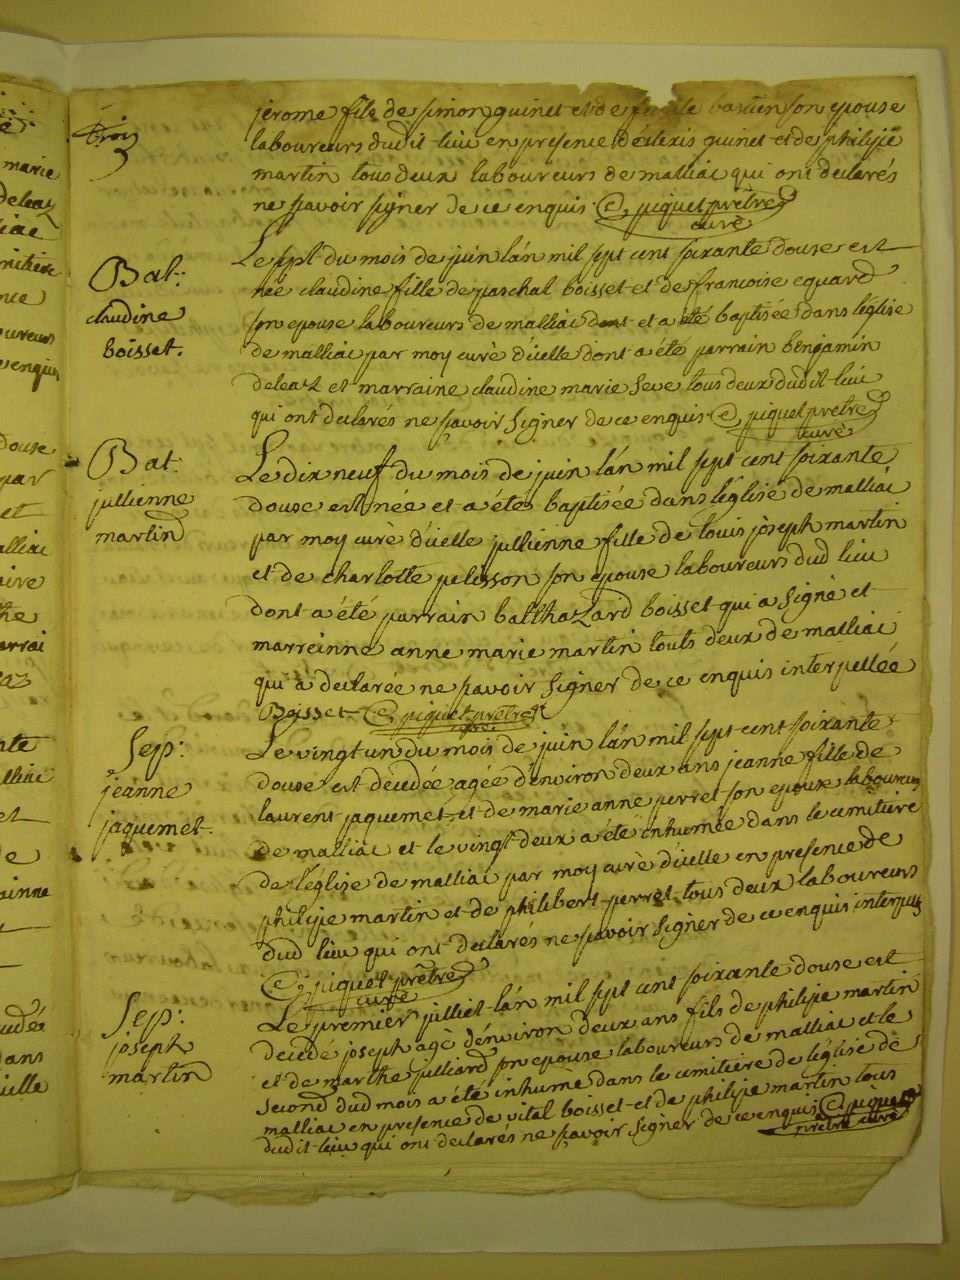 trois
jerome fils de simon guinet et de bastien son epouse
laboureurs dudit lieu en presence d'alexis guinet et de philipe
martin tous deux laboureurs de malliac qui ont declarés
ne sçavoir signer de ce enquis C, piquet prêtre
curé
Bat:
claudine
boisset.
Le sept du mois de juin l'an mil sept cent soixante douse est
née claudine fille de paschal boisset et de francoise equard
son epouse laboureurs de malliac et a été baptisée dans l'église
de malliac par moy curè d'icelle dont a été parrain benjamin
deleaz et marraine claudine marie seve tous deux dudit lieu
qui ont declarés ne sçavoir signer de ce enquis C, piquet pretre
curè
Bat:
jullienne
martin
Le dix neuf du mois de juin l'an mil sept cent soixante
douse est née et a étée baptisée dans l'église de malliac
par moy curè d'icelle jullienne fille de louis jòseph martin
et de charlotte pelisson son epouse laboureurs dud lieu
dont a été parrain balthazard boisset qui a signé et
marreinne anne marie martin touts deux de malliac
qui a declarée ne sçavoir signer de ce enquis interpellée
Boisset C, piquet prêtre
curé
Sep:
jeanne
jaquemet.
Le vingt un du mois de juin l'an mil sept cent soixante
douse est decedée agée d'environ deux ans jeanne fille de
laurent jaquemet et de marie anne perret son epouse laboureurs
de malliac et le vingt deux a été inhumée dans le cemitiere
de l'église de malliac par moy curè d'icelle en presence de
philipe martin et de philibert perret tous deux laboureurs
dud lieu qui ont declarés ne sçavoir signer de ce enquis interpellés
C, piquet prêtre
curé
Sep:
joseph
martin
Le premier juilliet l'an mil sept cent soixante douse est
decedé joseph agè d'environ deux ans fils de philipe martin
et de marthe julliard son epouse laboureurs de malliac et le
second dud mois a été inhumè dans le cemitiere de l'église de
malliac en presence de vital boisset et de philipe martin tous
dudit lieu qui ont declarés ne sçavoir signer de ce enquis C, piquet
prêtre curé